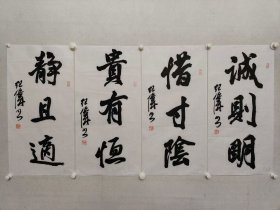 誠則明
惜寸陰
貴有恒
静且適